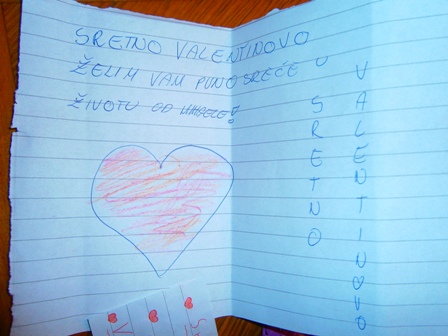 SRETNO VALENTINOVO
ŽELIM VAM PUNO SREĆE U
ŽIVOTU OD
SRETNO
VALENTINOVO